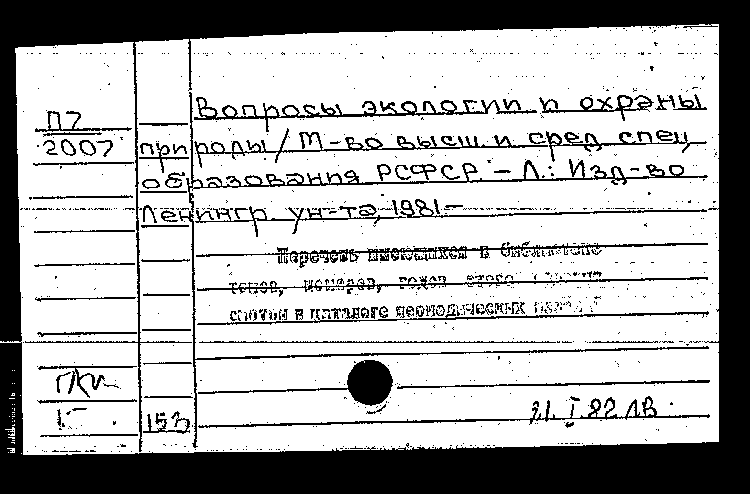 П7
2007
Вопросы экологии и охраны
природы / М-во высш. и сред. спец.
образования РСФСР. – Л.: Изд-во
Ленингр. ун-та, 1981–
Перечень имеющихся в библиотеке
томов, номеров, годов этого
смотри в каталоге периодических
153
21.I.82 ЛВ.